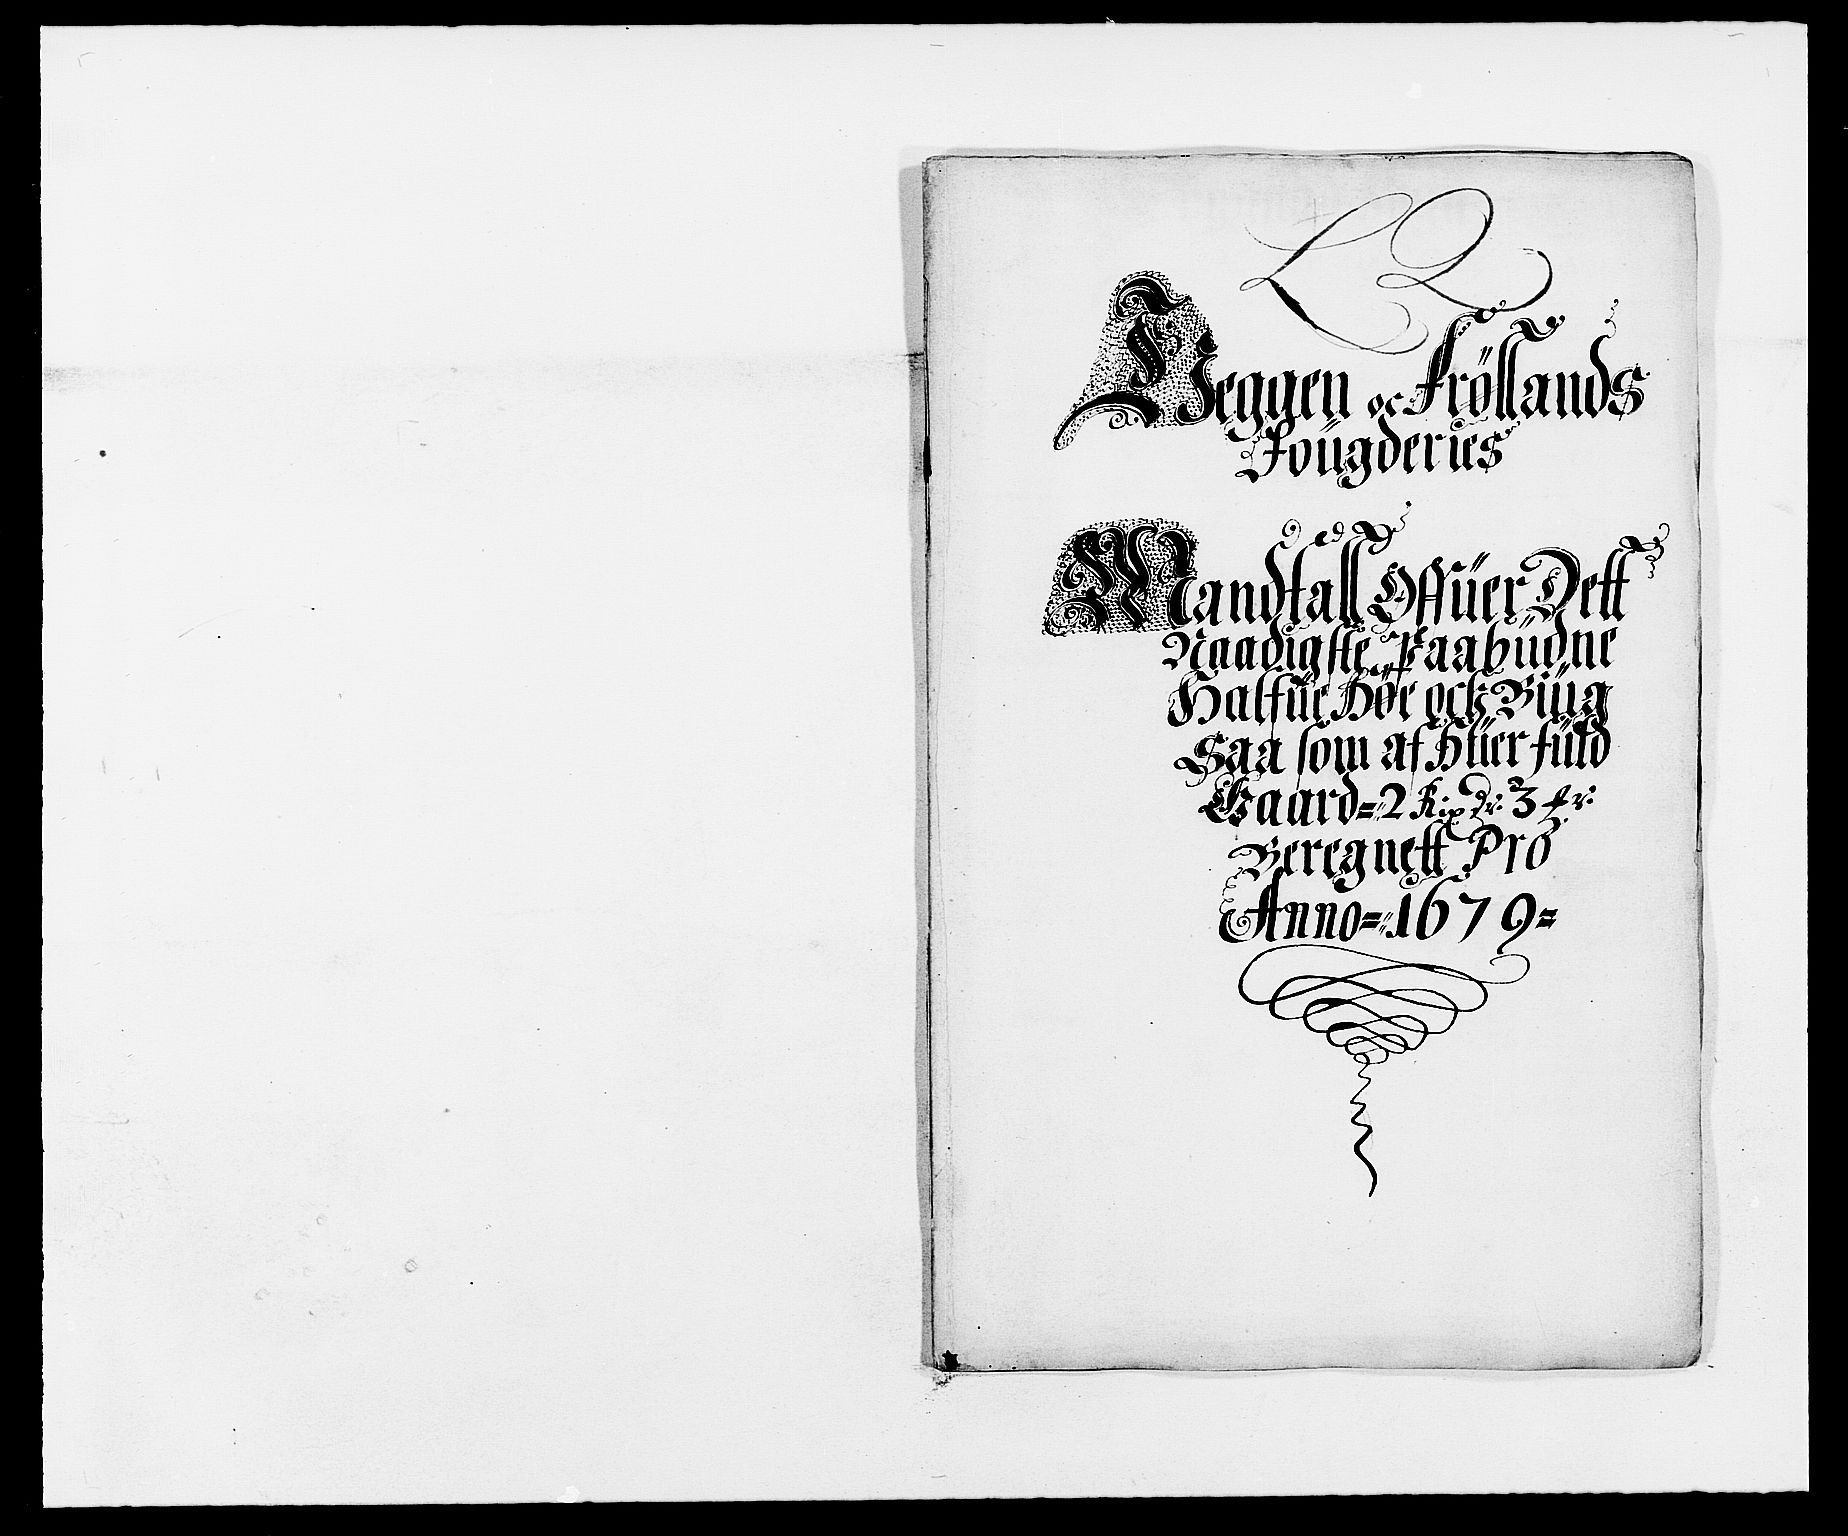 L Q
Heggen oc Fröllands
Foügderies
Mandtall Offüer Dett
Naadigste Paabüdne
Halfüe Höe ock Biüg
Saa som af Hüer füld
Gaard=2 Rix dr: 3
Beregnett Pro
Anno=1679=